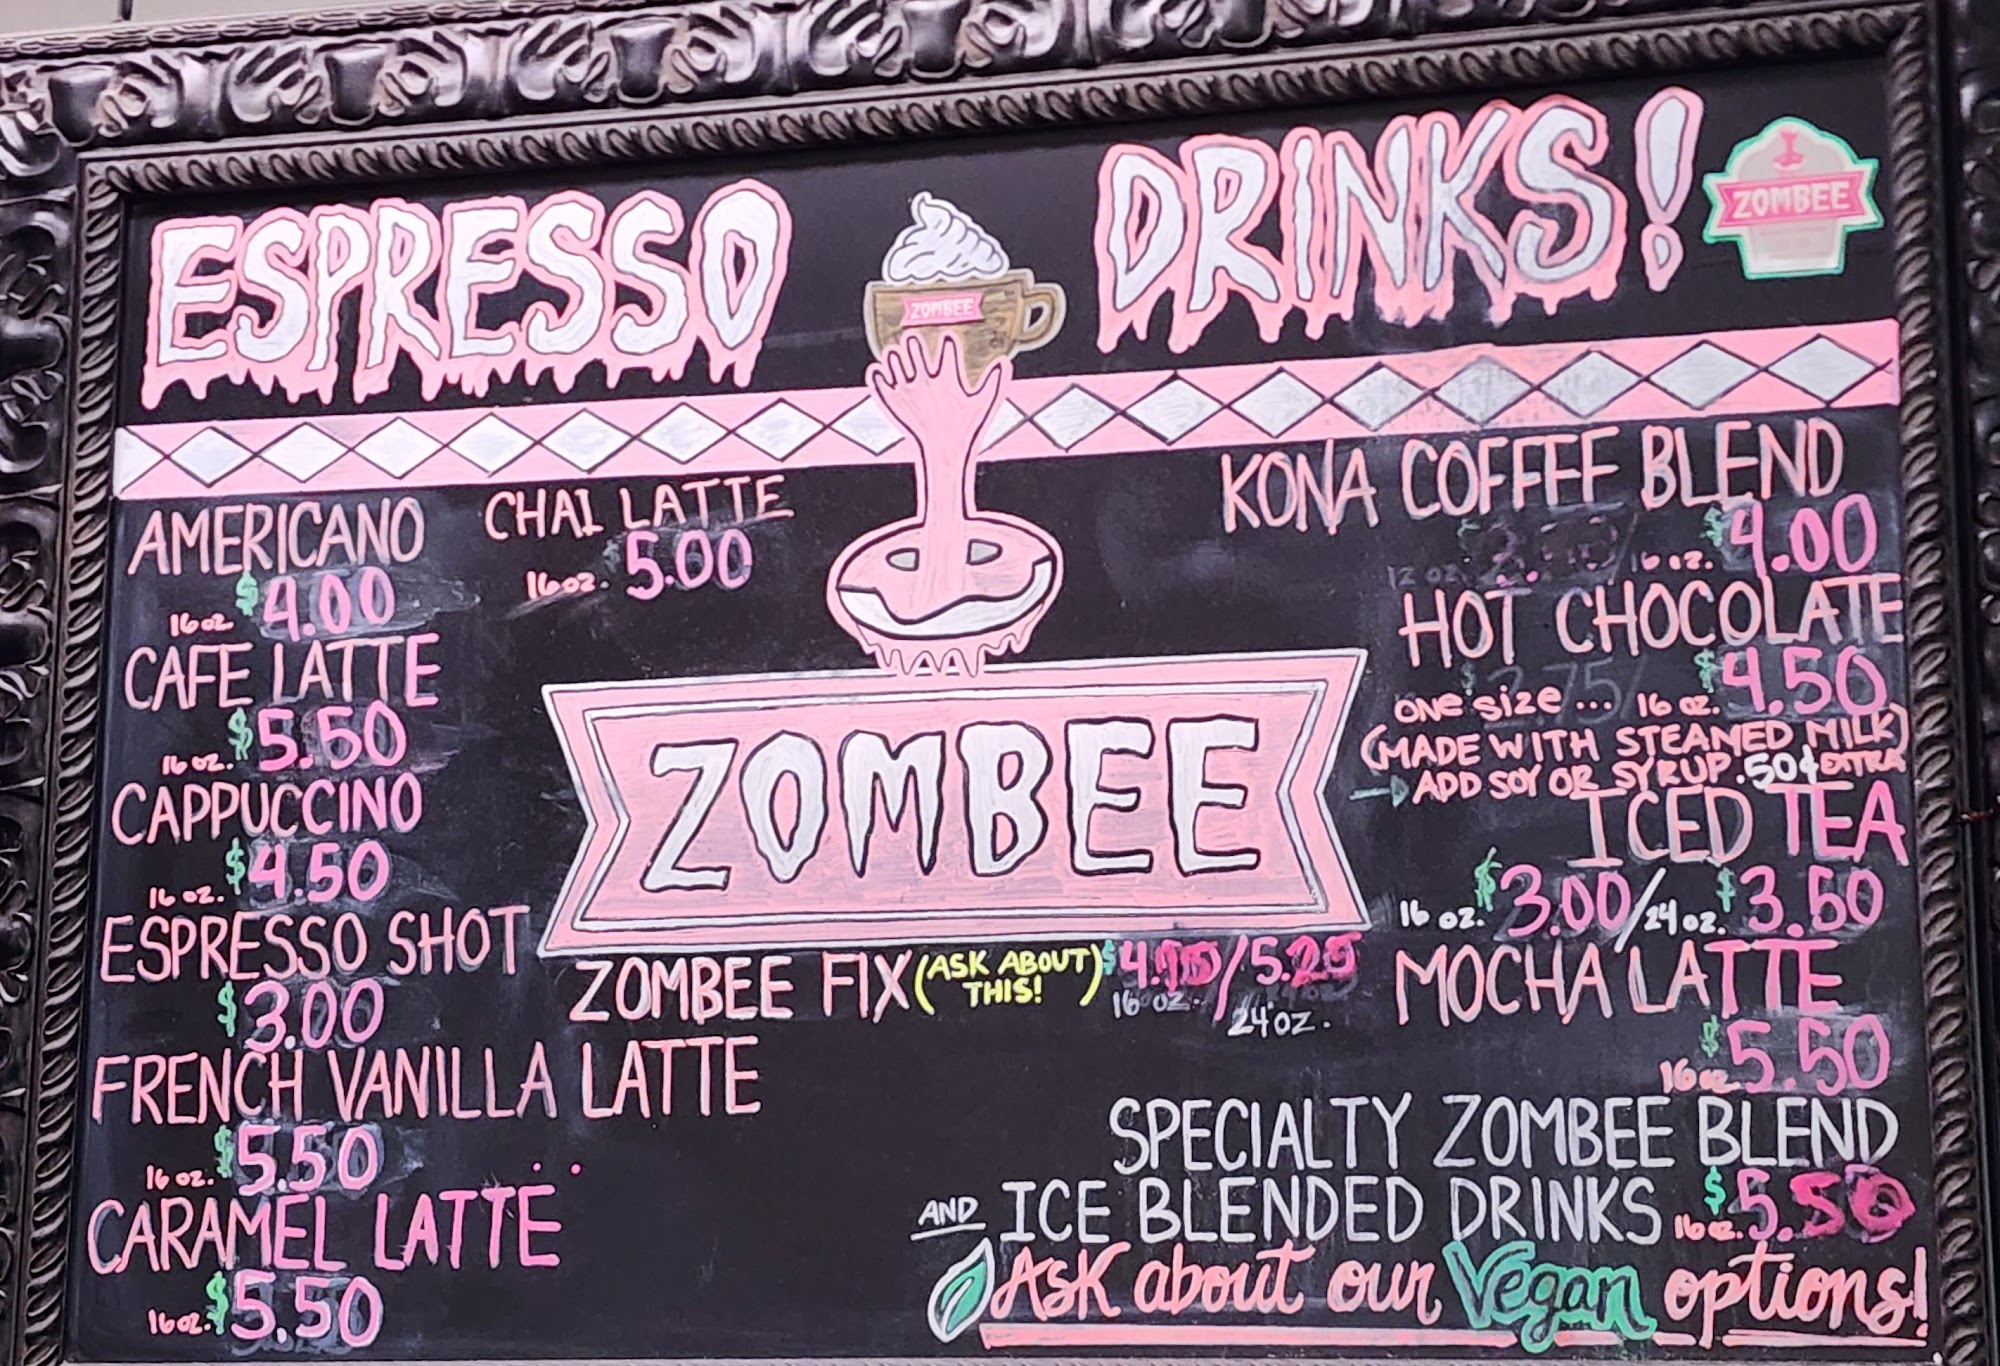 ESPRESSO DRINKS!
ZOMBEE
ZOMBEE
AMERICANO
16 oz $4.00
CAFE LATTE
16 oz. $5.50
CAPPUCCINO
16 oz. $4.50
ESPRESSO SHOT
$3.00
FRENCH VANILLA LATTE
16 oz. $5.50
CARAMEL LATTE
16 oz. $5.50
CHAI LATTE
16 oz. $5.00
ZOMBEE
ZOMBEE FIX (ASK ABOUT THIS!) /5.25
16 OZ. 24 OZ.
KONA COFFEE BLEND
12 oz. 16 oz. $4.00
HOT CHOCOLATE
ONE size ... 16 oz. $4.50
(MADE WITH STEAMED MILK)
ADD SOY OR SYRUP .50¢ EXTRA
ICED TEA
16 oz. $3.00/24 oz. $3.50
MOCHA LATTE
16 oz. $5.50
SPECIALTY ZOMBEE BLEND
AND ICE BLENDED DRINKS 16 oz. $5.50
Ask about our Vegan options!